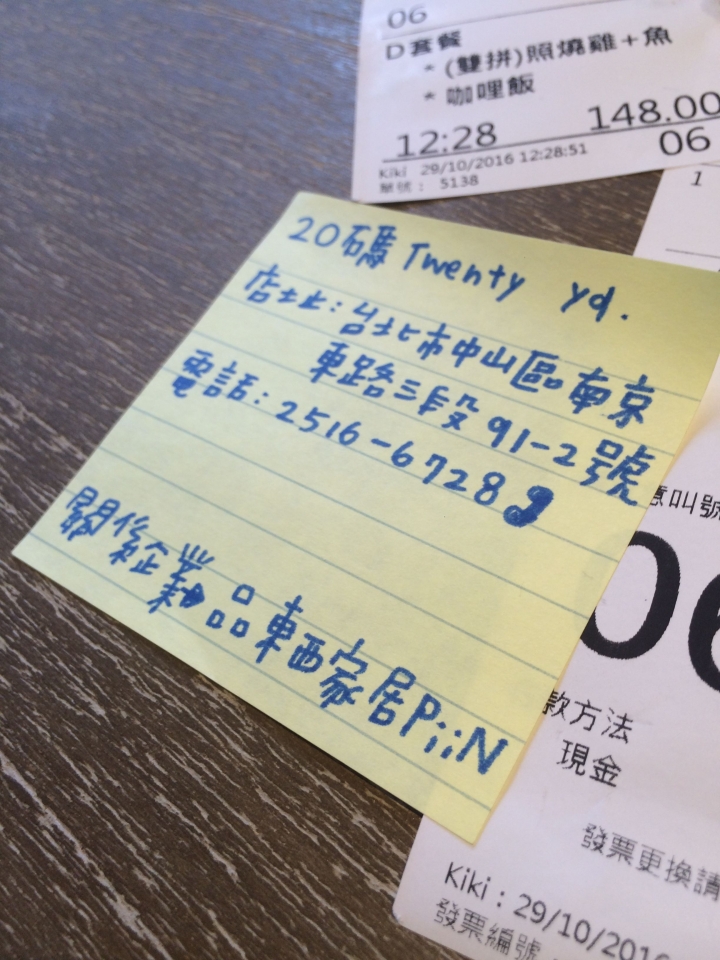 06
D套餐
* (雙拼)照燒雞+魚
* 咖哩飯
148.00
12:28
06
Kiki 29/10/2016 12:28:51
單號: 5138
1
20碼 Twenty yd.
店址:台北市中山區南京
東路三段91-2號
電話:2516-6728
關係企業品東西家居PiiN
意叫號
06
款方法
現金
發票更換請
Kiki : 29/10/2016
發票編號